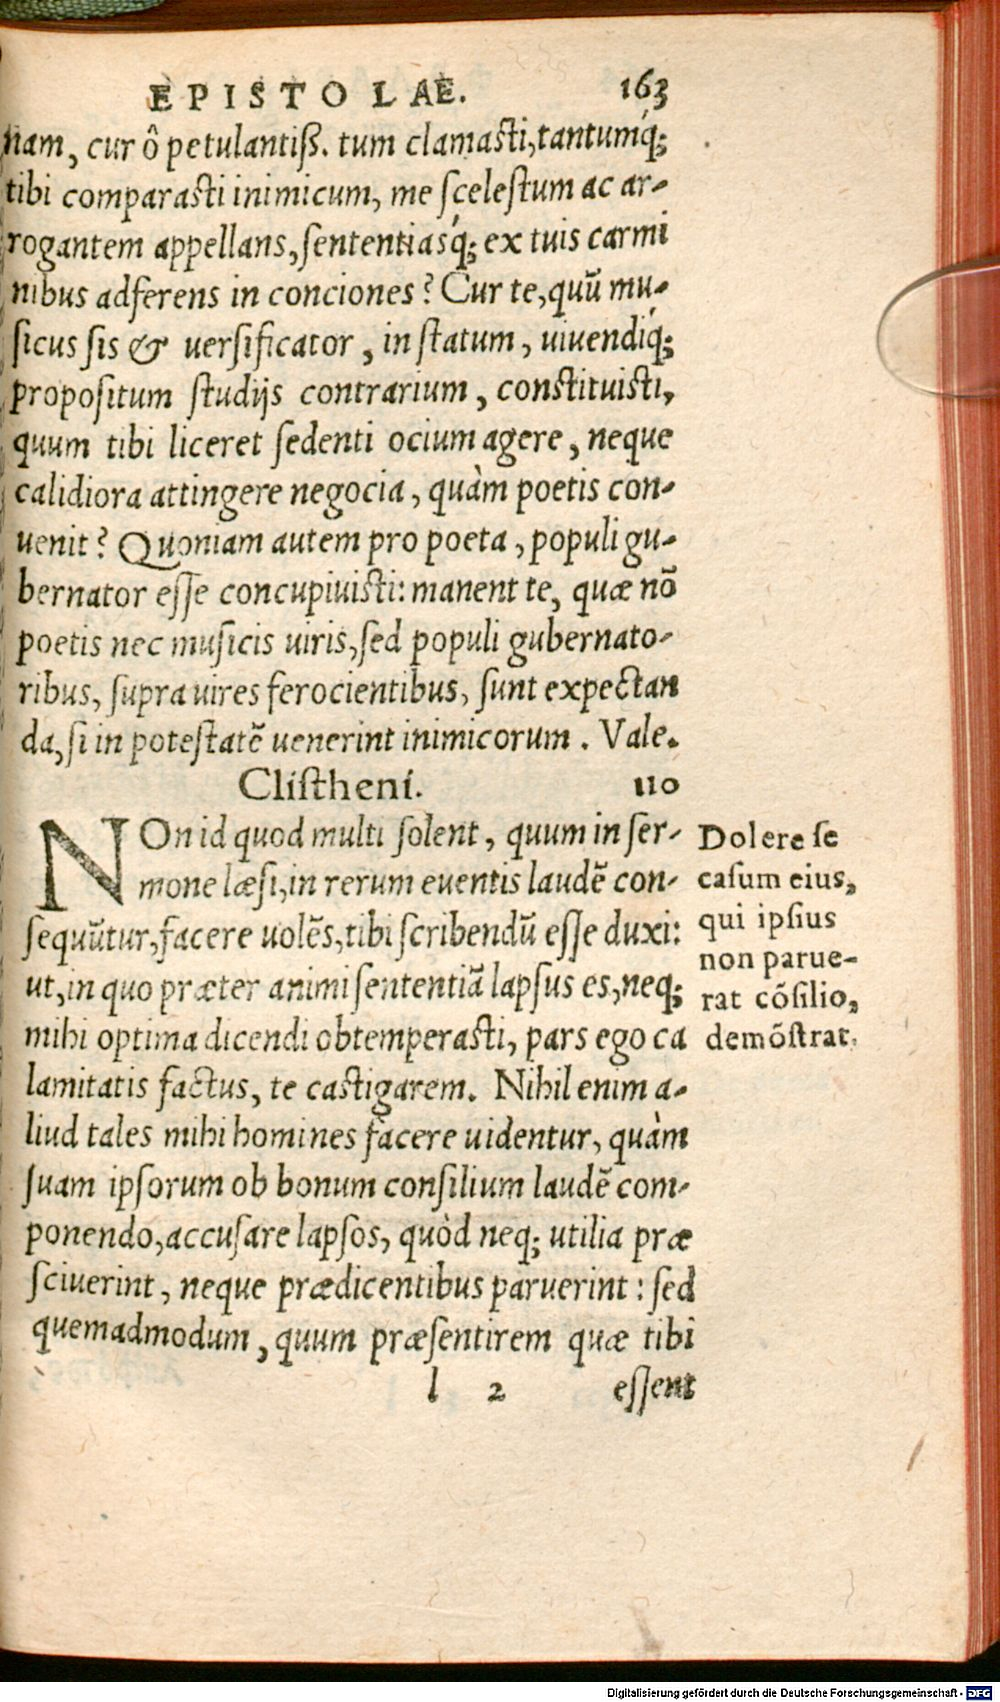 EPISTOLAE. 163
nam, cur ô petulantiß. tum clamasti, tantumq́;
tibi comparasti inimicum, me scelestum ac ar-
rogantem appellans, sententiasq́; ex tuis carmi
nibus adferens in conciones? Cur te, quũ mu-
sicus sis & uersificator, in statum, uiuendiq́;
propositum studijs contrarium, constituisti,
quum tibi liceret sedenti ocium agere, neque
calidiora attingere negocia, quàm poetis con-
uenit? Quoniam autem pro poeta, populi gu-
bernator esse concupiuisti: manent te, quæ nõ
poetis nec musicis uiris, sed populi gubernato-
ribus, supra uires ferocientibus, sunt expectan
da, si in potestatẽ uenerint inimicorum. Vale.
Clistheni. 110
NOn id quod multi solent, quum in ser-
mone læsi, in rerum euentis laudẽ con-
sequũtur, facere uolẽs, tibi scribendũ esse duxi:
ut, in quo præter animi sententiã lapsus es, neq;
mihi optima dicendi obtemperasti, pars ego ca
lamitatis factus, te castigarem. Nihil enim a-
liud tales mihi homines facere uidentur, quàm
suam ipsorum ob bonum consilium laudẽ com-
ponendo, accusare lapsos, quòd neq; utilia præ
sciuerint, neque prædicentibus paruerint: sed
quemadmodum, quum præsentirem quæ tibi
l 2 essent
Dolere se
casum eius,
qui ipsius
non parue-
rat cõsilio,
demõstrat.
Digitalisierung gefördert durch die Deutsche Forschungsgemeinschaft - DFG